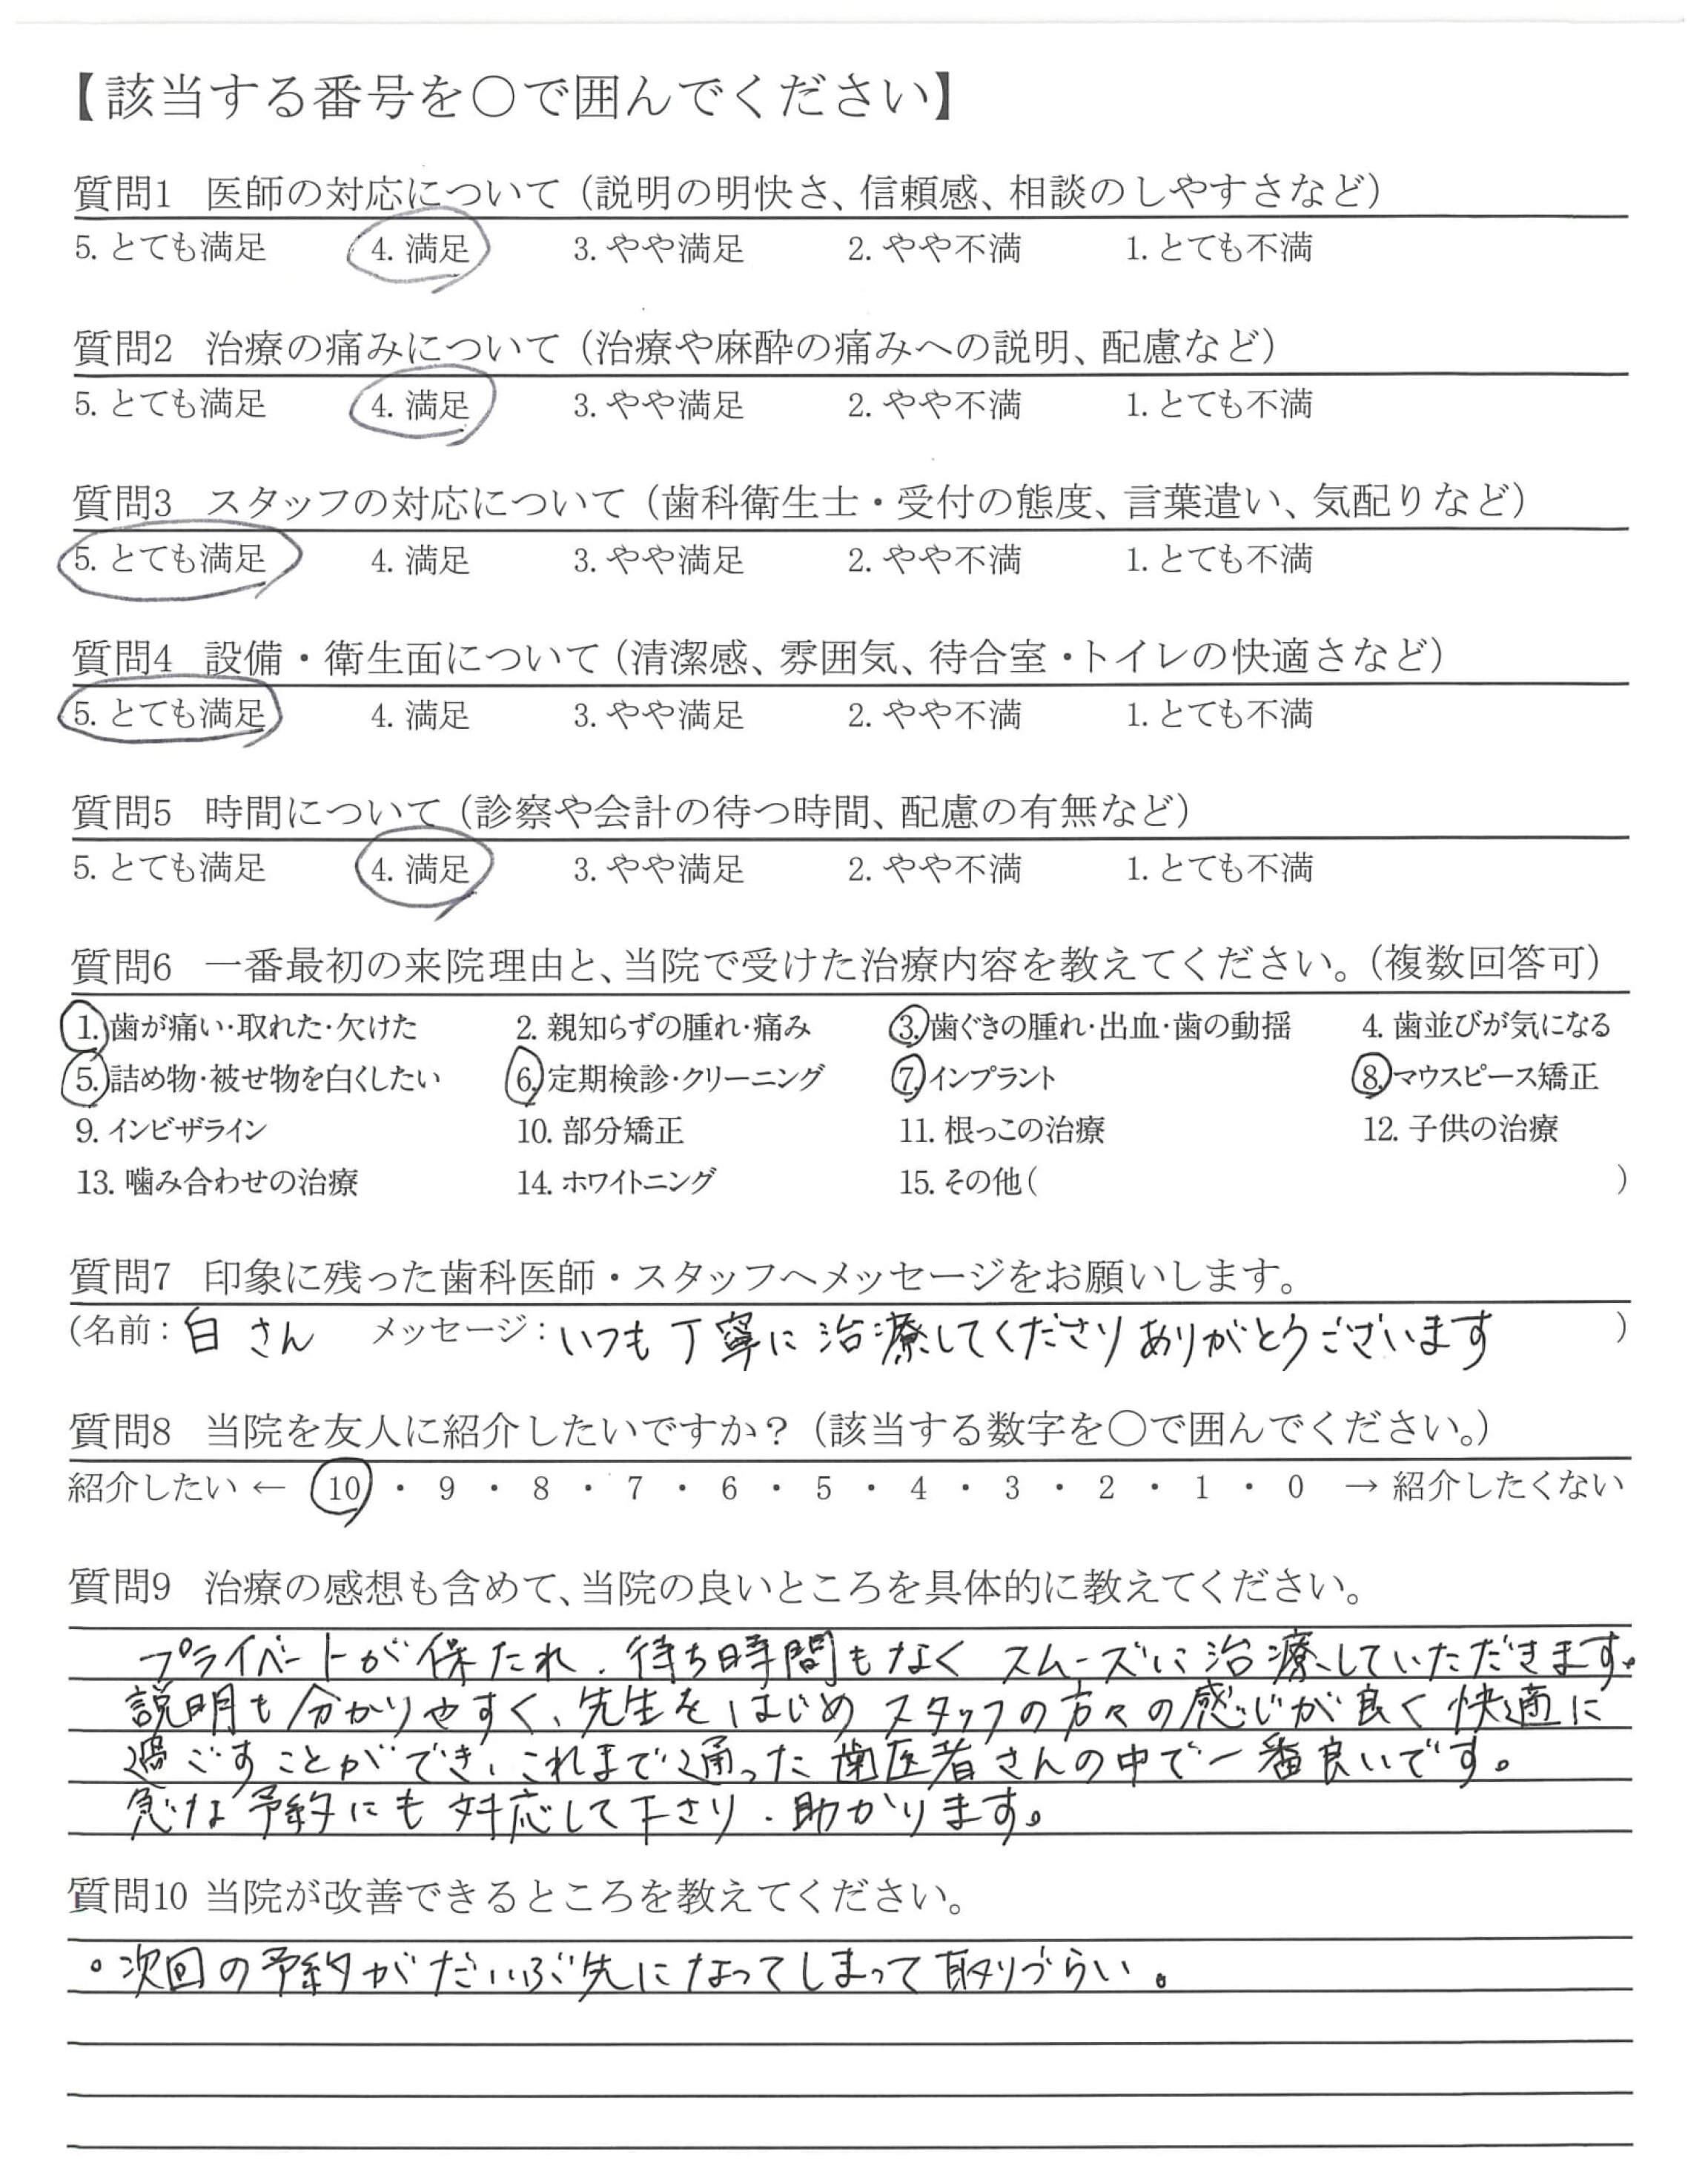 【該当する番号を〇で囲んでください】
質問1 医師の対応について（説明の明快さ、信頼感、相談のしやすさなど）
5. とても満足 4. 満足 3. やや満足 2. やや不満 1. とても不満
質問2 治療の痛みについて（治療や麻酔の痛みへの説明、配慮など）
5. とても満足 4. 満足 3. やや満足 2. やや不満 1. とても不満
質問3 スタッフの対応について（歯科衛生士・受付の態度、言葉遣い、気配りなど）
5. とても満足 4. 満足 3. やや満足 2. やや不満 1. とても不満
質問4 設備・衛生面について（清潔感、雰囲気、待合室・トイレの快適さなど）
5. とても満足 4. 満足 3. やや満足 2. やや不満 1. とても不満
質問5 時間について（診察や会計の待つ時間、配慮の有無など）
5. とても満足 4. 満足 3. やや満足 2. やや不満 1. とても不満
質問6 一番最初の来院理由と、当院で受けた治療内容を教えてください。（複数回答可）
1. 歯が痛い・取れた・欠けた 2. 親知らずの腫れ・痛み 3. 歯ぐきの腫れ・出血・歯の動揺 4. 歯並びが気になる
5. 詰め物・被せ物を白くしたい 6. 定期検診・クリーニング 7. インプラント 8. マウスピース矯正
9. インビザライン 10. 部分矯正 11. 根っこの治療 12. 子供の治療
13. 噛み合わせの治療 14. ホワイトニング 15. その他（ ）
質問7 印象に残った歯科医師・スタッフへメッセージをお願いします。
（名前：白さん メッセージ：いつも丁寧に治療してくださりありがとうございます ）
質問8 当院を友人に紹介したいですか？（該当する数字を〇で囲んでください。）
紹介したい ← 10 ・ 9 ・ 8 ・ 7 ・ 6 ・ 5 ・ 4 ・ 3 ・ 2 ・ 1 ・ 0 → 紹介したくない
質問9 治療の感想も含めて、当院の良いところを具体的に教えてください。
プライベートが保たれ、待ち時間もなくスムーズに治療していただきます。
説明も分かりやすく、先生をはじめスタッフの方々の感じが良く快適に
過ごすことができ、これまで通った歯医者さんの中で一番良いです。
急な予約にも対応して下さり、助かります。
質問10 当院が改善できるところを教えてください。
・次回の予約がだいぶ先になってしまって取りづらい。